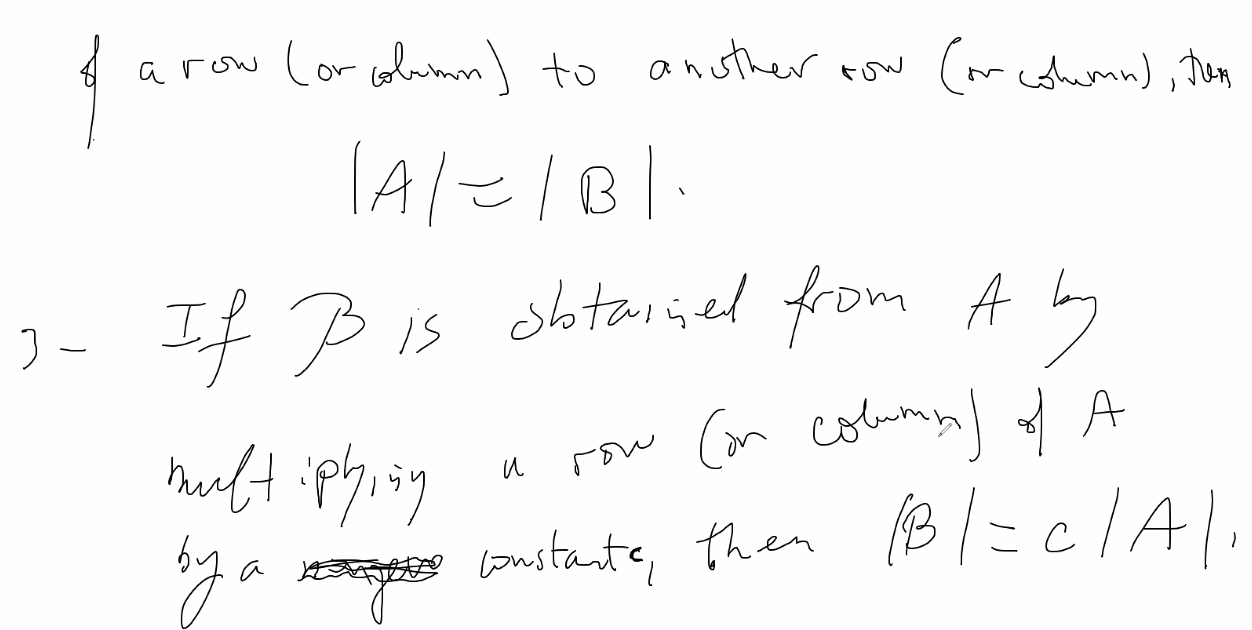 of a row (or column) to another row (or column), then
|A| = |B|.
3- If B is obtained from A by
multiplying a row (or column) of A
by a constant c, then |B| = c|A|.